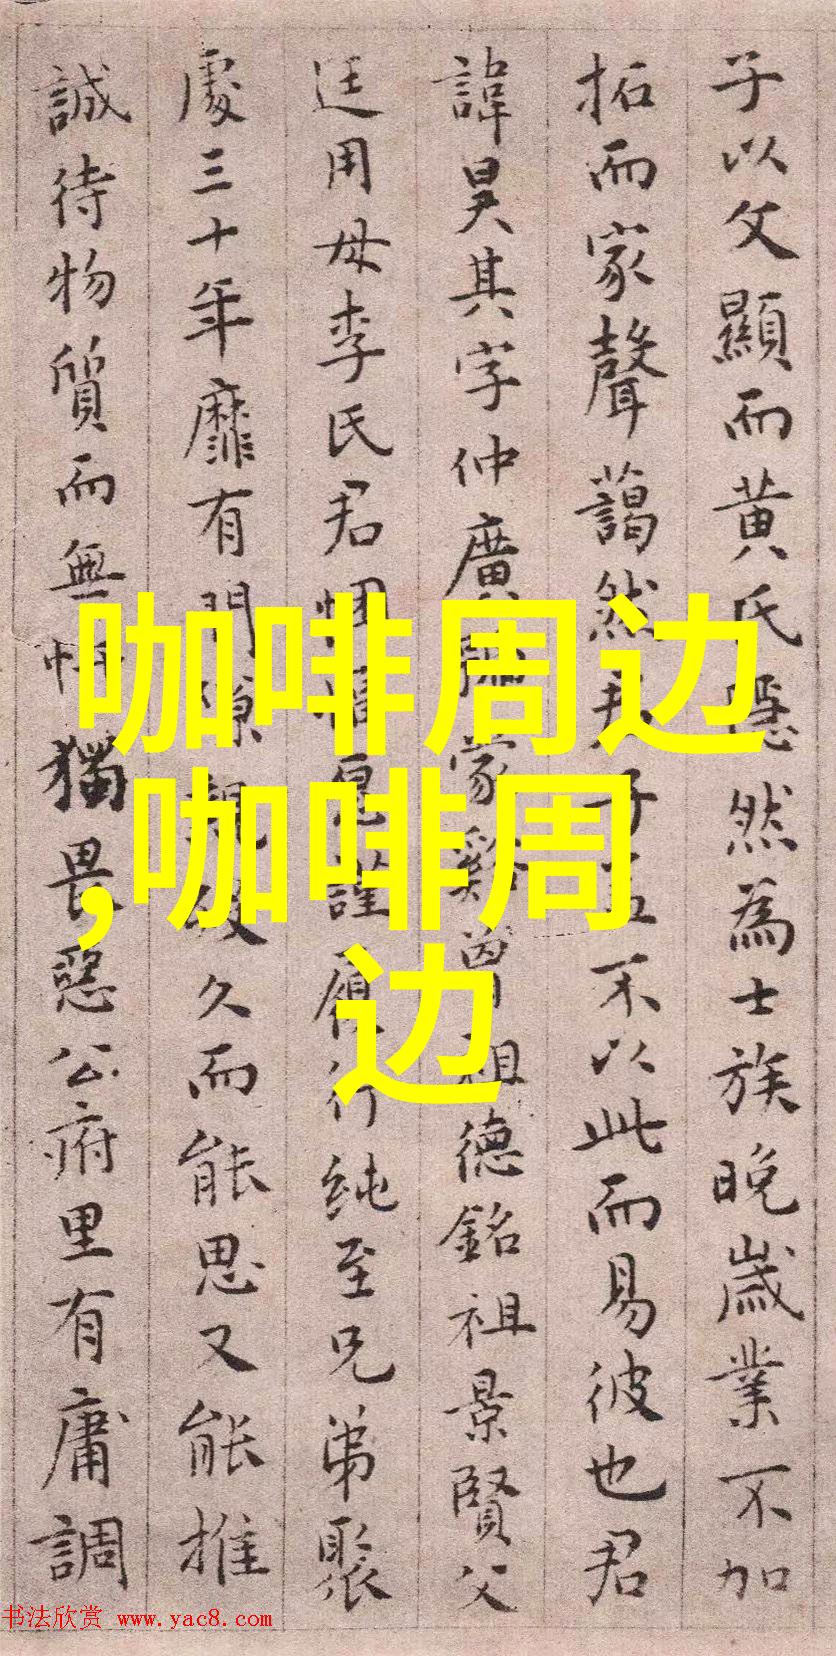 子以父顯而黄氏隱然為士族晚歲業不加
拓而家聲藹然君子不以此而易彼也君
諱昊其字仲廣蒙曾祖德銘祖景賢父
廷用母李氏君謹履行純至兄弟聚
處三十年靡有門隙久而能思又能推
誠待物質而無忤獨畏惡公府里有庸調
咖啡周边
,咖啡周
边
书法欣赏 www.yac8.com